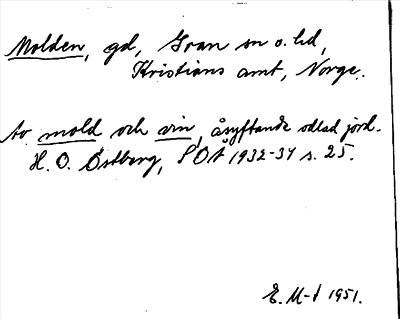 Molden, gd, Gran sn o. hd,
Kristians amt, Norge.
Av mold och vin, åsyftande odlad jord.
H. O. Østberg, SOÅ 1932-34 s. 25.
E. M-d 1951.